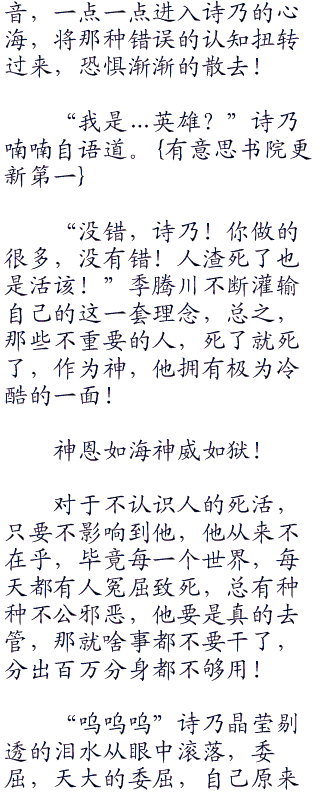 音，一点一点进入诗乃的心
海，将那种错误的认知扭转
过来，恐惧渐渐的散去！
“我是…英雄？”诗乃
喃喃自语道。{有意思书院更
新第一}
“没错，诗乃！你做的
很多，没有错！人渣死了也
是活该！”季腾川不断灌输
自己的这一套理念，总之，
那些不重要的人，死了就死
了，作为神，他拥有极为冷
酷的一面！
神恩如海神威如狱！
对于不认识人的死活，
只要不影响到他，他从来不
在乎，毕竟每一个世界，每
天都有人冤屈致死，总有种
种不公邪恶，他要是真的去
管，那就啥事都不要干了，
分出百万分身都不够用！
“呜呜呜”诗乃晶莹剔
透的泪水从眼中滚落，委
屈，天大的委屈，自己原来